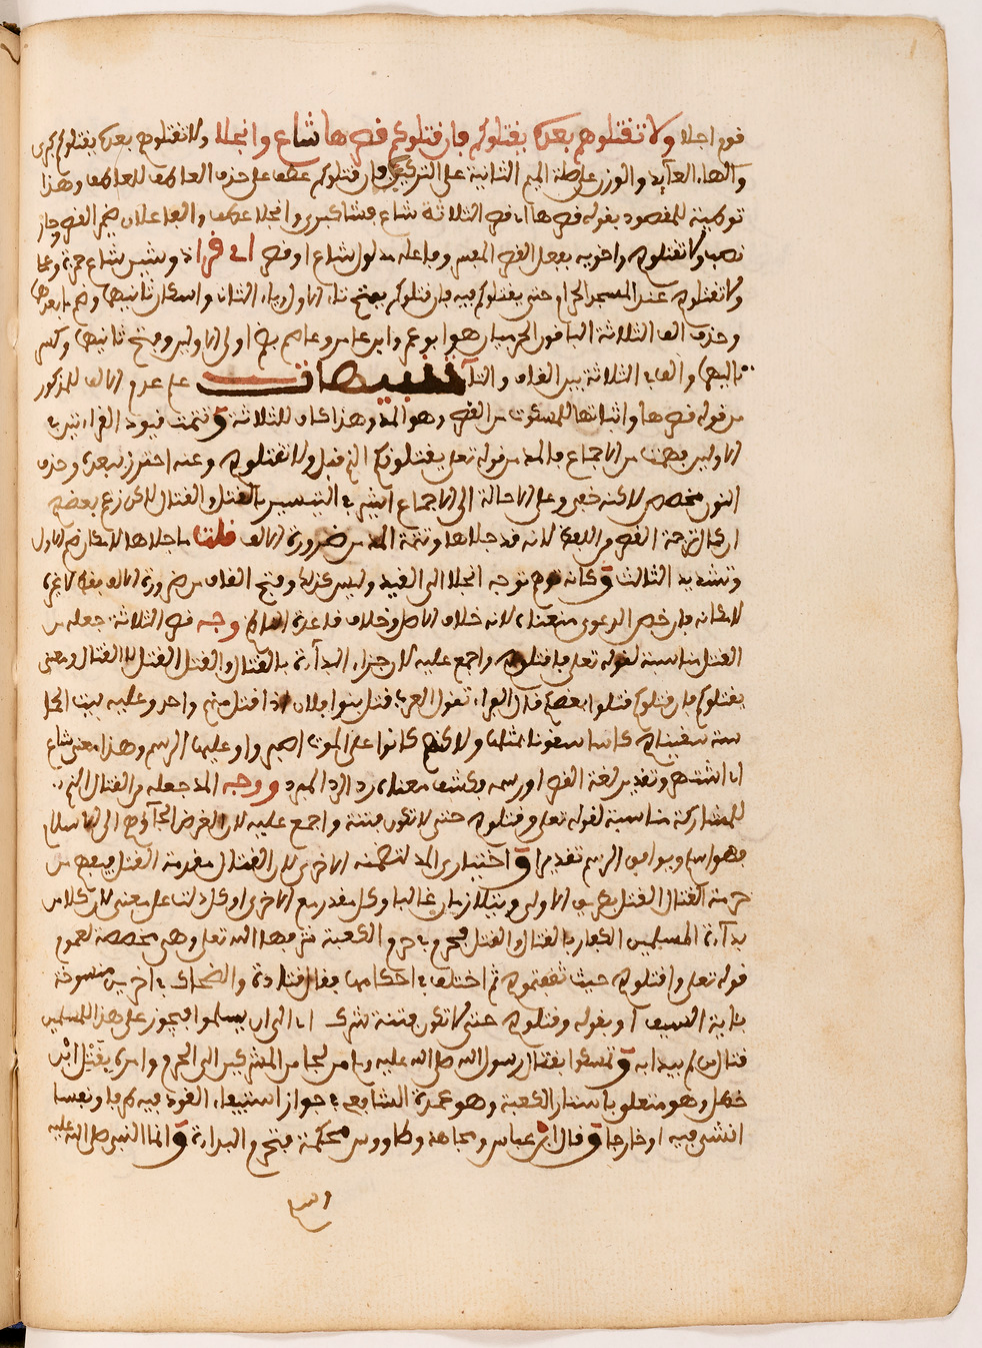 قوم اجلا ولا تقتلوهم بعده يقتلوكم فإن قتلوكم قصرها شاع وانجلا ولا تقتلوهم بعده يقتلوكم كبرى
والهاء العايد والوزن على صلة الميم الثانية على التركيب فإن قتلوكم عطف على حذف العاطف للعاطف وهذا
توطية للمقصود بقوله قصرها اى قصر الثلاثة شاع فشا كبرى وانجلا عطف والفاعلان ضمير القصر وجاز
نصب ولا تقتلوهم واخويه بفعل القصر المفسر وفاعله مدلول شاع او قصر اى قرا ذو شين شاع حمزة وعلى
ولا تقتلوهم عند المسجد الحرام حتى يقتلوكم فيه فإن قتلوكم بفتح تاء الاول وياء الثانى واسكان ثانيهما وضم ما بعدهما
وحذف الف الثلاثة الباقون الحرميان هوا بو عمرو وابن عامر وعاصم بضم اولى الاولين وفتح ثانيهما وكسر
ثالثهما والف فى الثلاثة بين القاف والتاء تنبيهات على عدم الالف المذكور
من قوله قصرها واثباتها للمسكوت من القصر وهو المد وهذا كاف للثلاثة و تمت قيود القراءتين فى
الاولين فهمت من الاجماع فالمد من قوله تعلى يقتلونكم الذى قبل ولا تقتلوهم وعنه احترز ببعده وحذف
النون مخصص لاكنه خفى وعلى الاحالة الى الاجماع اشير فى التيسير بالقتل والقتال لاكن زعم بعضهم
ان كمال ترجمة القصر من اللفظ لانه قد جلاها وتتمة المد من ضرورة الالف قلت ما جلاها لامكان ضم الاول
وتشديد الثالث و كانه توهم توجه انجلا الى القيد وليس كذلك وفتح القاف من ضرورة الالف فقط لا غيره
لامكانه فإن خص الدعوى منعناه لانه خلاف الاصل وخلاف قاعدة الناظم وجه قصر الثلاثة جعله من
القتل مناسبة لقوله تعلى فاقتلوهم واجمع عليه لان جزاء البدأة بالقتال والقتل القتل لا القتال ومعنى
يقتلوكم فإن قتلوكم قتلوا بعضكم قال الفراء تقول العرب قتل بنوا فلان اذا قتل منهم واحد وعليه بيت الحماسة
سقيناهم كاسا سقونا بمثلها ولاكنهم كانوا على الموت اصبر او عليهما الرسم وهذا معنى شاع
اى اشتهر وتقدير لغة القصر او رسمه وكشف معناه رد الرد المبرد ووجه المد جعله من القتال الذى
للمشاركة مناسبة لقوله تعلى وقتلوهم حتى لا تكون فتنة واجمع عليه لان الغرض الجآؤهم الى الاسلام
فهو اسلم ويوافق الرسم تقديرا و اختيارى المد لتضمنه الاخرى لان القتال مقدمة القتل فيفهم من
حرمة القتال القتل بطريق الاولى ويتلازمان غالبا وكل مقدر مع الاخرى او كل دلت على معنى لان كلا من
بدأة المسلمين الكفار بالقتال والقتل محرم فى حرم الكعبة شرفها الله تعلى وهى مخصصة لعموم
قوله تعلى واقتلوهم حيث ثقفتموهم ثم اختلف فى احكامها فقال قتادة والضحاك فى اخرين منسوخة
بئاية السيف او بقوله وقتلوهم حتى لا تكون فتنة شرك اى الى ان يسلموا فيجوز على هذا للمسلمين
قتال من لم يبدا به و تمسكوا بقتال رسول الله صلى الله عليه وسلم من لجا من المشركين الى الحرم وامره بقتل ابن
خطل وهو متعلق باستار الكعبة وهو عمدة الشافعى فى جواز استيفاء القود فيه طرفا ونفسا
انشئ فيه او خارجا و قال ابن عباس ومجاهد وطاووس محكمة فتحرم البدأة و انما النبى صلى الله عليه
وسلم